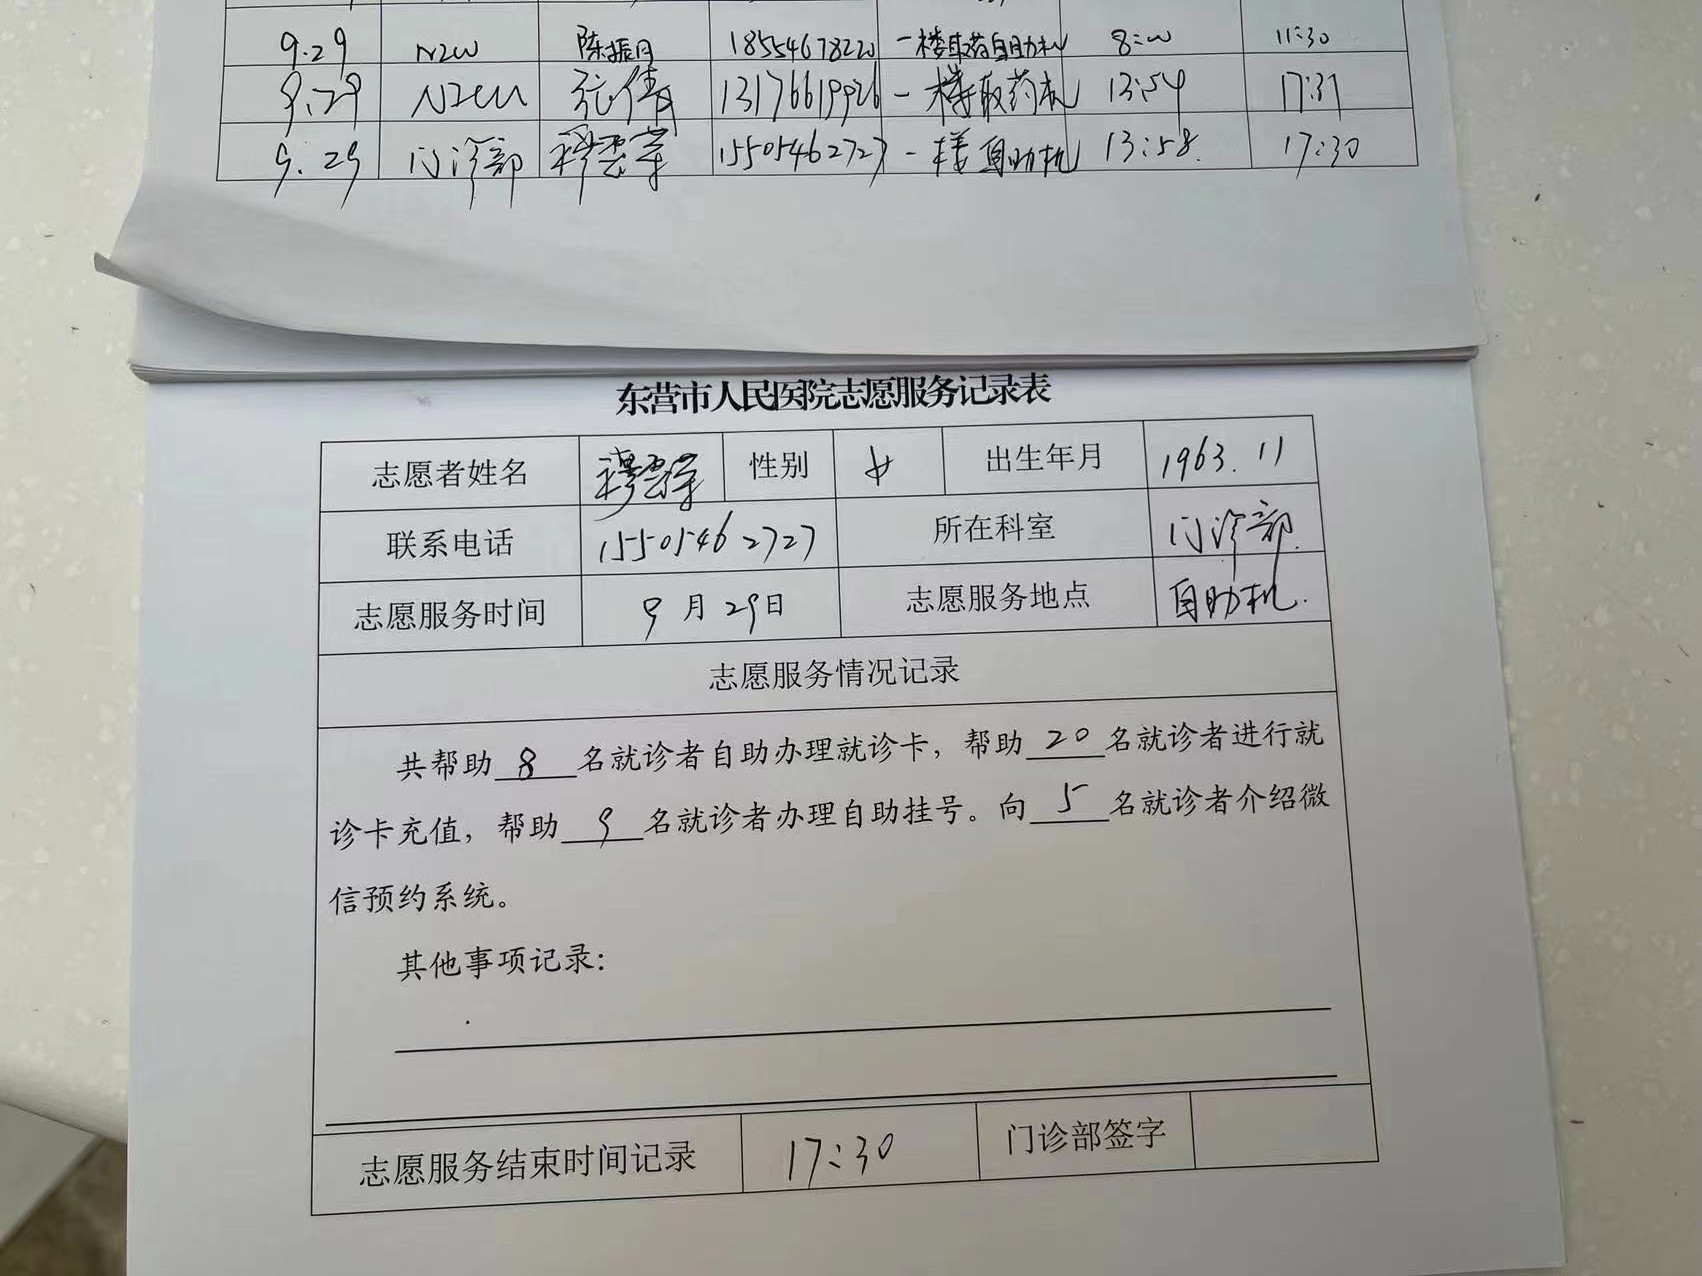 9.29 N2W 陈振月 18554678220 一楼取药自助机 8:00 11:30
9.29 N2W 张倩 13176619926 一楼取药机 13:54 17:31
9.29 门诊部 穆云荣 15505462727 一楼自助机 13:58. 17:30
东营市人民医院志愿服务记录表
志愿者姓名 穆云荣 性别 女 出生年月 1963.11
联系电话 15505462727 所在科室 门诊部.
志愿服务时间 9月29日 志愿服务地点 自助机.
志愿服务情况记录
共帮助 8 名就诊者自助办理就诊卡，帮助 20 名就诊者进行就
诊卡充值，帮助 9 名就诊者办理自助挂号。向 5 名就诊者介绍微
信预约系统。
其他事项记录：
志愿服务结束时间记录 17:30 门诊部签字